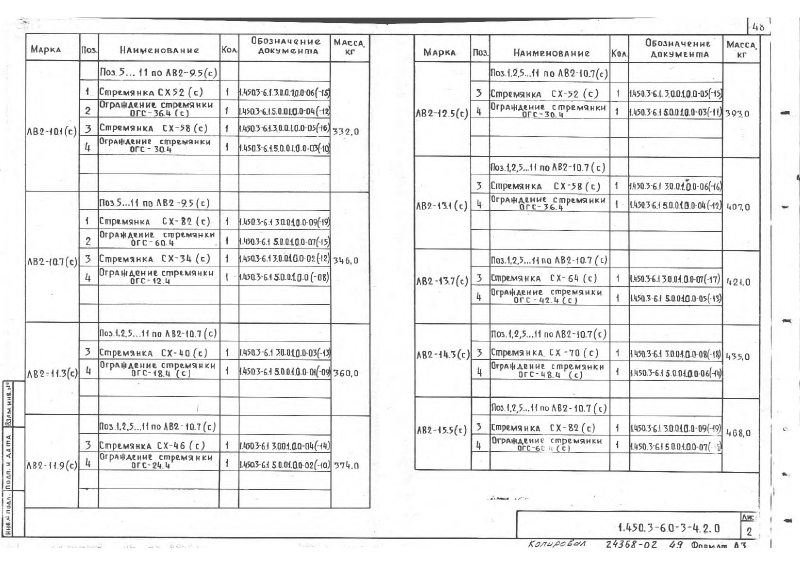 48
Марка Поз. Наименование Кол. Обозначение документа Масса, кг
Поз. 5...11 по ЛВ2-9.5(с)
1 Стремянка СХ52 (с) 1 1.450.3-6.1.3.0.0.1.0.0-06(-15)
2 Ограждение стремянки ОГС-36.4 (с) 1 1.450.3-6.1.5.0.0.1.0.0-04(-12)
ЛВ2-10.1(с) 3 Стремянка СХ-58 (с) 1 1.450.3-6.1.3.0.0.1.0.0-05(-16) 332,0
4 Ограждение стремянки ОГС-30.4 1 1.450.3-6.1.5.0.0.1.0.0-03(-10)
Поз. 5...11 по ЛВ2-9.5(с)
1 Стремянка СХ-82 (с) 1 1.450.3-6.1 3.0.0.1.0.0-09(-19)
2 Ограждение стремянки ОГС-60.4 1 1.450.3-6.1 5.0.0.1.0.0-07(-15)
ЛВ2-10.7(с) 3 Стремянка СХ-34 (с) 1 1.450.3-6.1 3.0.0.1.0.0-02(-12) 346,0
4 Ограждение стремянки ОГС-12.4 1 1.450.3-6.1 5.0.0.1.0.0 (-08)
Поз. 1,2,5...11 по ЛВ2-10.7(с)
3 Стремянка СХ-40 (с) 1 1.450.3-6.1 3.0.0.1.0.0-03(-13)
ЛВ2-11.3(с) 4 Ограждение стремянки ОГС-18.4 (с) 1 1.450.3-6.1 5.0.0.1.0.0-01(-09) 360,0
Поз. 1,2,5...11 по ЛВ2-10.7(с)
3 Стремянка СХ-46 (с) 1 1.450.3-6.1 3.0.0.1.0.0-04(-14)
ЛВ2-11.9(с) 4 Ограждение стремянки ОГС-24.4 1 1.450.3-6.1 5.0.0.1.0.0-02(-10) 374,0
Марка Поз. Наименование Кол. Обозначение документа Масса, кг
Поз. 1,2,5...11 по ЛВ2-10.7(с)
3 Стремянка СХ-52 (с) 1 1.450.3-6.1.3.0.0.1.0.0-05(-15)
ЛВ2-12.5(с) 4 Ограждение стремянки ОГС-30.4 1 1.450.3-6.1.5.0.0.1.0.0-03(-11) 393,0
Поз. 1,2,5...11 по ЛВ2-10.7(с)
3 Стремянка СХ-58 (с) 1 1.450.3-6.1 3.0.0.1.0.0-06(-16)
ЛВ2-13.1(с) 4 Ограждение стремянки ОГС-36.4 1 1.450.3-6.1 5.0.0.1.0.0-04(-12) 407,0
Поз. 1,2,5...11 по ЛВ2-10.7(с)
ЛВ2-13.7(с) 3 Стремянка СХ-64 (с) 1 1.450.3-6.1 3.0.0.1.0.0-07(-17) 421,0
4 Ограждение стремянки ОГС-42.4 (с) 1 1.450.3-6.1 5.0.0.1.0.0-05(-13)
Поз. 1,2,5...11 по ЛВ2-10.7(с)
ЛВ2-14.3(с) 3 Стремянка СХ-70 (с) 1 1.450.3-6.1 3.0.0.1.0.0-08(-18) 435,0
4 Ограждение стремянки ОГС-48.4 (с) 1 1.450.3-6.1 5.0.0.1.0.0-06(-14)
Поз. 1,2,5...11 по ЛВ2-10.7(с)
ЛВ2-15.5(с) 3 Стремянка СХ-82 (с) 1 1.450.3-6.1 3.0.0.1.0.0-09(-19) 468,0
4 Ограждение стремянки ОГС-60.4(с) 1 1.450.3-6.1 5.0.0.1.0.0-07
Инв.№ подл. Подп. и дата Взам.инв.№
1.450.3-6.0-3-4.2.0
Лис
2
Копировал 24368-02 49 Формат А3